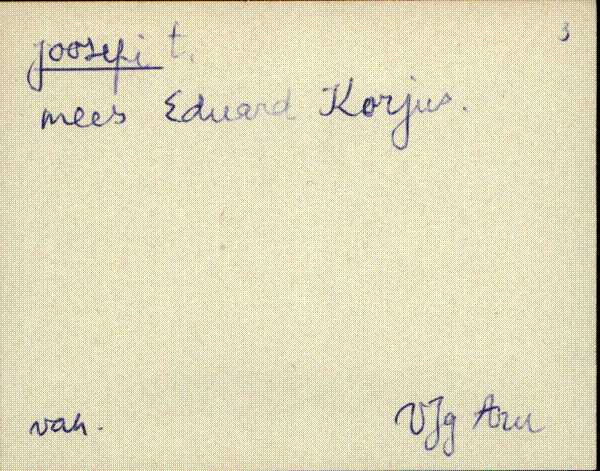 3
Joosepi t.
mees Eduard Korjus.
vah.
VJg Aru